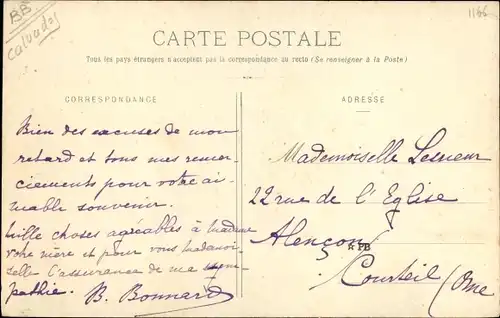 BB
Calvados
1166
CARTE POSTALE
Tous les pays étrangers n'acceptent pas la correspondance au recto (Se renseigner à la Poste)
CORRESPONDANCE
Bien des excuses de mon
retard et tous mes remer-
ciements pour votre ai-
mable souvenir.
Mille choses agréables à Madame
votre mère et pour vous Mademoi-
selle l'assurance de ma sym-
pathie. B. Bonnard
ADRESSE
Mademoiselle Lesueur
22 rue de l'Eglise
Alençon
RPB
Courteil (Orne